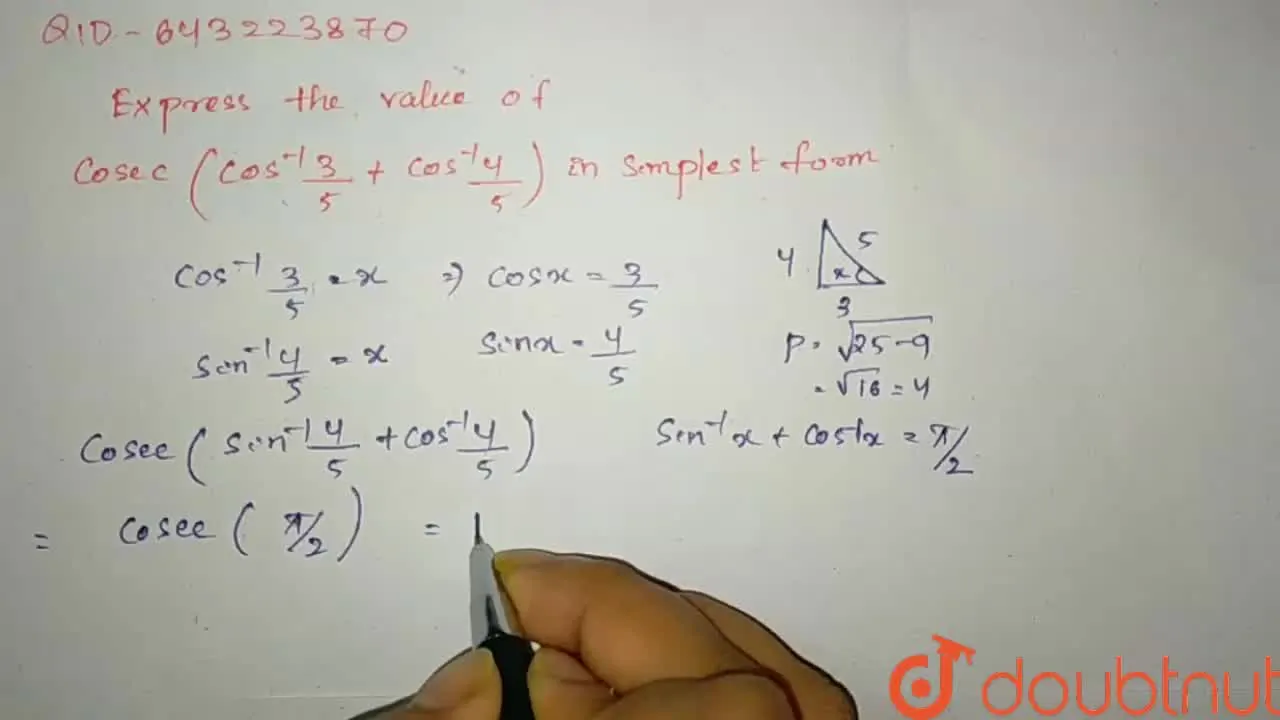 QID - 643223870
Express the value of
Cosec (cos⁻¹ 3/5 + cos⁻¹ 4/5) in simplest form
cos⁻¹ 3/5 = x ⇒ cosx = 3/5
4 5 x 3
sin⁻¹ 4/5 = x sinx = 4/5
P = √25-9
= √16 = 4
Cosec (sin⁻¹ 4/5 + cos⁻¹ 4/5) sin⁻¹x + cos⁻¹x = π/2
= cosec (π/2) = 1
doubtnut